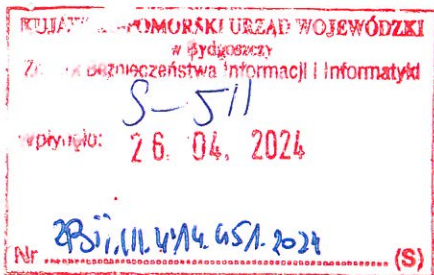 KUJAWSKO-POMORSKI URZĄD WOJEWÓDZKI
w Bydgoszczy
Bezpieczeństwa Informacji i Informatyki
S-511
wpłynęło: 26. 04. 2024
Nr (S)